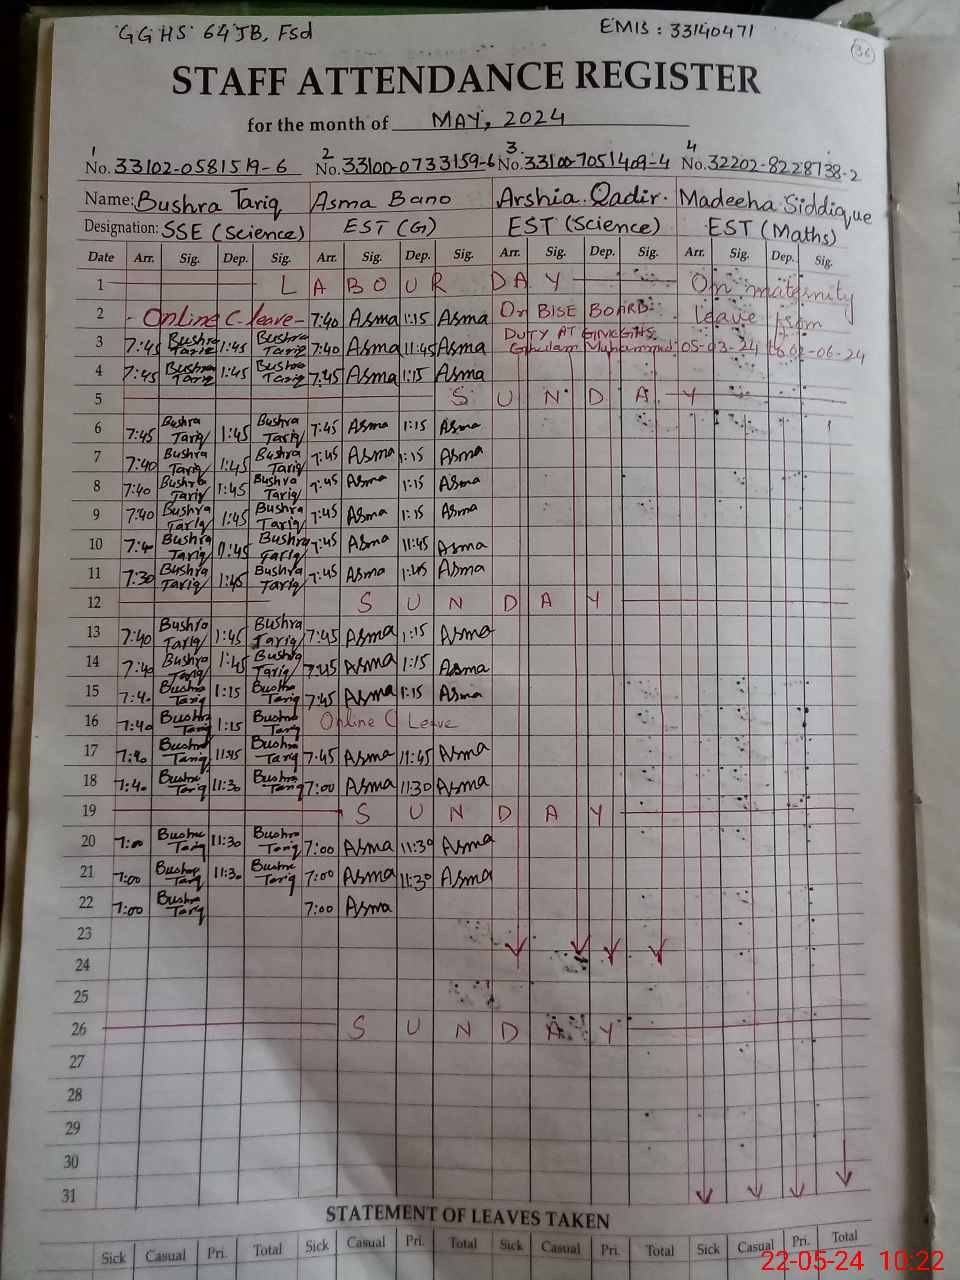 GGHS 64JB, Fsd EMIS : 33140471
36
STAFF ATTENDANCE REGISTER
for the month of MAY, 2024
1 2 3. 4
No. 33102-0581519-6 No. 33100-0733159-6 No. 33100-7051409-4 No. 32202-8228738-2
Name: Bushra Tariq Asma Bano Arshia Qadir. Madeeha Siddique
Designation: SSE (Science) EST (G) EST (Science) EST (Maths)
Date Arr. Sig. Dep. Sig. Arr. Sig. Dep. Sig. Arr. Sig. Dep. Sig. Arr. Sig. Dep. Sig.
1 LABOUR DAY On maternity
2 - Online C-leave - 7:40 Asma 1:15 Asma On BISE BOARD leave from
3 7:45 Bushra Tariq 1:45 Bushra Tariq 7:40 Asma 11:45 Asma DUTY AT Ghulam Muhammad 05-03-24 to 02-06-24
4 7:45 Bushra Tariq 1:45 Bushra Tariq 7:45 Asma 1:15 Asma
5 SUNDAY
6 7:45 Bushra Tariq 1:45 Bushra Tariq 7:45 Asma 1:15 Asma
7 7:40 Bushra Tariq 1:45 Bushra Tariq 7:45 Asma 1:15 Asma
8 7:40 Bushra Tariq 1:45 Bushra Tariq 7:45 Asma 1:15 Asma
9 7:40 Bushra Tariq 1:45 Bushra Tariq 7:45 Asma 1:15 Asma
10 7:40 Bushra Tariq 11:45 Bushra Tariq 7:45 Asma 11:45 Asma
11 7:30 Bushra Tariq 1:45 Bushra Tariq 7:45 Asma 1:45 Asma
12 SUNDAY
13 7:40 Bushra Tariq 1:45 Bushra Tariq 7:45 Asma 1:15 Asma
14 7:40 Bushra Tariq 1:45 Bushra Tariq 7:45 Asma 1:15 Asma
15 7:40 Bushra Tariq 1:15 Bushra Tariq 7:45 Asma 1:15 Asma
16 7:40 Bushra Tariq 1:15 Bushra Tariq Online C Leave
17 7:40 Bushra Tariq 11:45 Bushra Tariq 7:45 Asma 11:45 Asma
18 7:40 Bushra Tariq 11:30 Bushra Tariq 7:00 Asma 11:30 Asma
19 SUNDAY
20 7:00 Bushra Tariq 11:30 Bushra Tariq 7:00 Asma 11:30 Asma
21 7:00 Bushra Tariq 11:30 Bushra Tariq 7:00 Asma 11:30 Asma
22 7:00 Bushra Tariq 7:00 Asma
23
24
25
26 SUNDAY
27
28
29
30
31
STATEMENT OF LEAVES TAKEN
Sick Casual Pri. Total Sick Casual Pri. Total Sick Casual Pri. Total Sick Casual Pri. Total
22-05-24 10:22